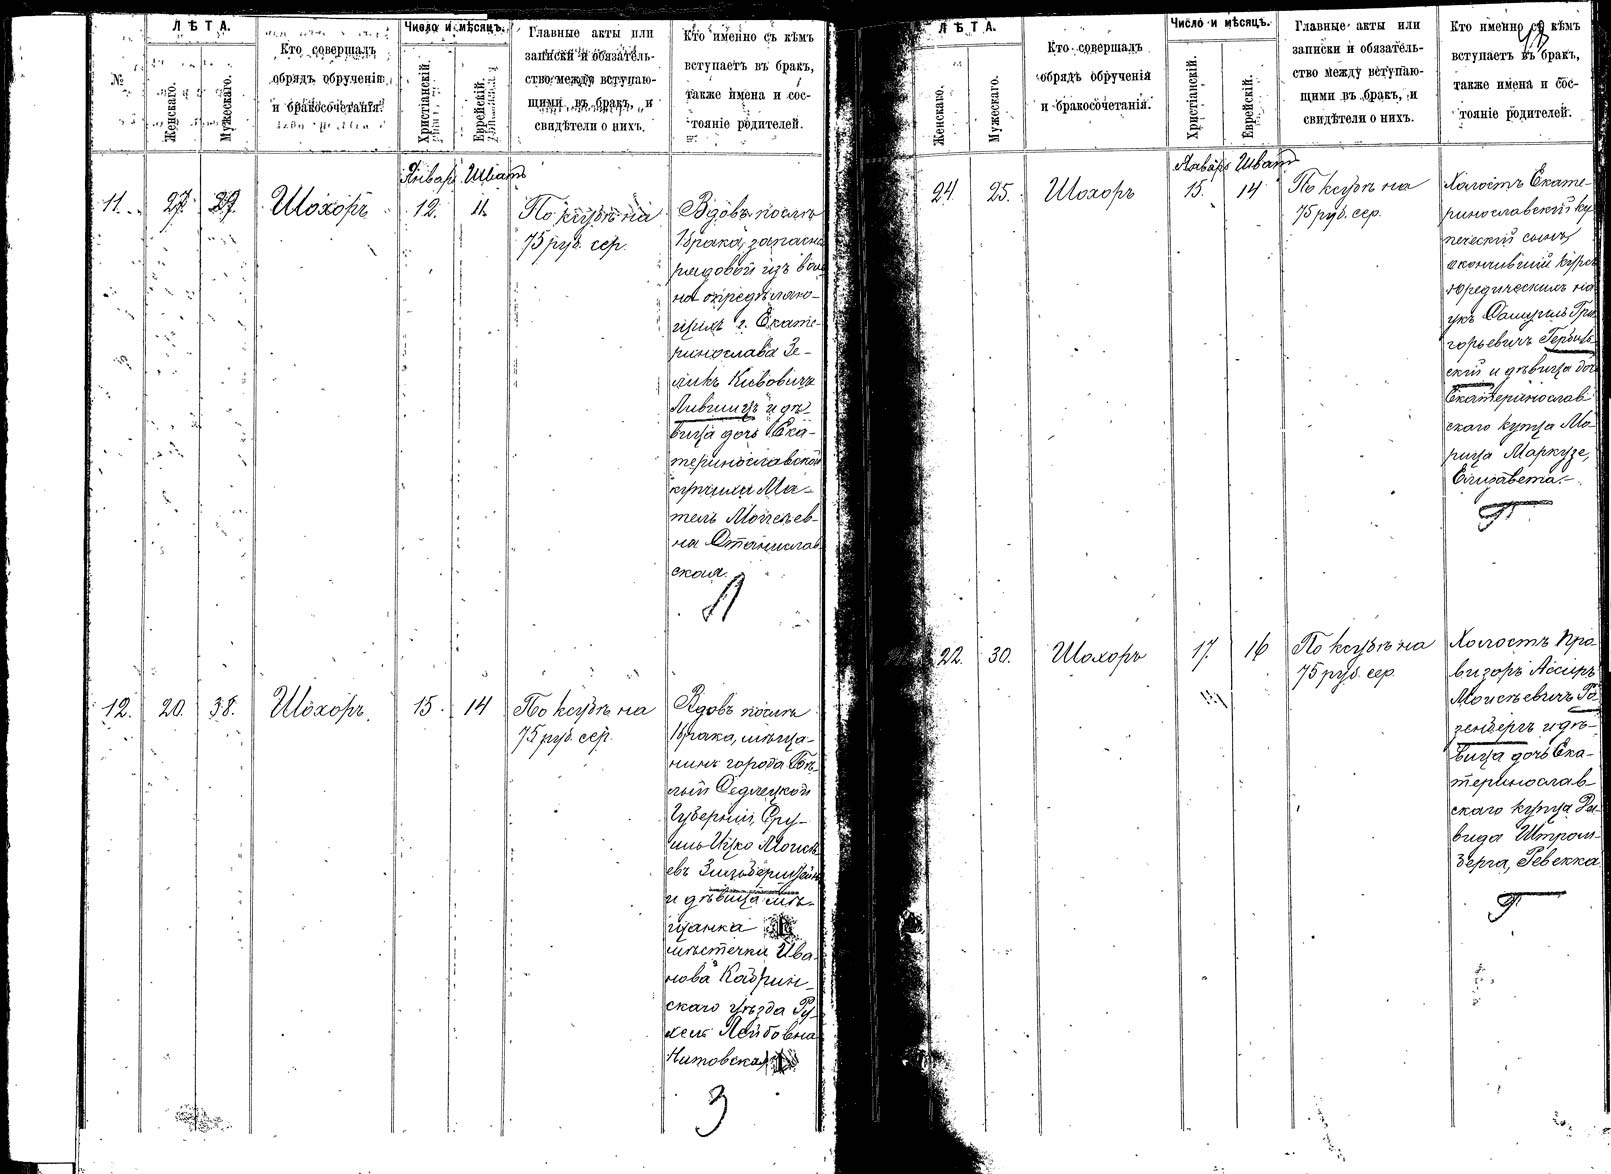 №
ЛѢТА.
Женскаго.
Мужескаго.
Кто совершалъ
обрядъ обрученія
и бракосочетанія.
Число и мѣсяцъ.
Христіанскій.
Еврейскій.
Главные акты или
записки и обязатель-
ство между вступаю-
щими въ бракъ, и
свидѣтели о нихъ.
Кто именно съ кѣмъ
вступаетъ въ бракъ,
также имена и сос-
тояніе родителей.
Январь Шватъ
11. 27. 29. Шохоръ 12. 11.
По ксубѣ на
75 руб. сер.
Вдовъ послѣ
1 брака, запасн
рядовой изъ воль
но опредѣляю-
щихъ г. Екате-
ринослава Зе-
ликъ
Лившицъ и дѣ-
вица дочь Ека-
теринославской
купчихи Ма-
тель Моисеев-
на Станислав
ская.
Л
12. 20. 38. Шохоръ 15. 14
По ксубѣ на
75 руб. сер.
Вдовъ послѣ
1 брака, мѣща-
нинъ города Бѣ-
лы Седлецкой
Губерніи, Сру-
ль-Ицко Моисе
евъ Зильберштейнъ
и дѣвица мѣ-
щанка
мѣстечка Ива
нова Кобрин-
скаго уѣзда Ру-
хель Лейбовна
3
ЛѢТА.
Женскаго.
Мужескаго.
Кто совершалъ
обрядъ обрученія
и бракосочетанія.
Число и мѣсяцъ.
Христіанскій.
Еврейскій.
Главные акты или
записки и обязатель-
ство между вступаю-
щими въ бракъ, и
свидѣтели о нихъ.
Кто именно съ кѣмъ
вступаетъ въ бракъ,
также имена и сос-
тояніе родителей.
Январь Шватъ
24. 25. Шохоръ 15. 14
По ксубѣ на
75 руб. сер.
Холостъ Екате-
ринославскій ку
печескій сынъ,
окончившій курсъ
юредическихъ на
укъ Самуилъ Гри
горьевичъ Гербилев-
скій и дѣвица доч
Екатеринослав
скаго купца Мо-
рица Маркузе,
Елизавета.-
Г
22. 30. Шохоръ 17. 16
По ксубѣ на
75 руб. сер.
Холостъ Про
визоръ Ассиръ
Моисѣевичъ Ро
зенбергъ и дѣ-
вица дочь Ека-
теринослав-
скаго купца Да
вида Штром-
берга, Ревекка
Г